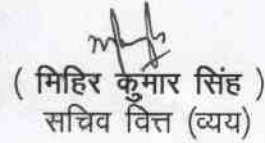 ( मिहिर कुमार सिंह )
सचिव वित्त (व्यय)